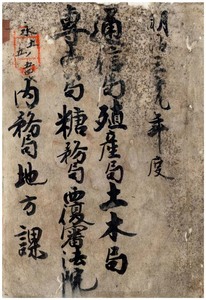 明治三九年度
通信局殖産局土木局
専売局糖務局覆審法院
内務局地方課